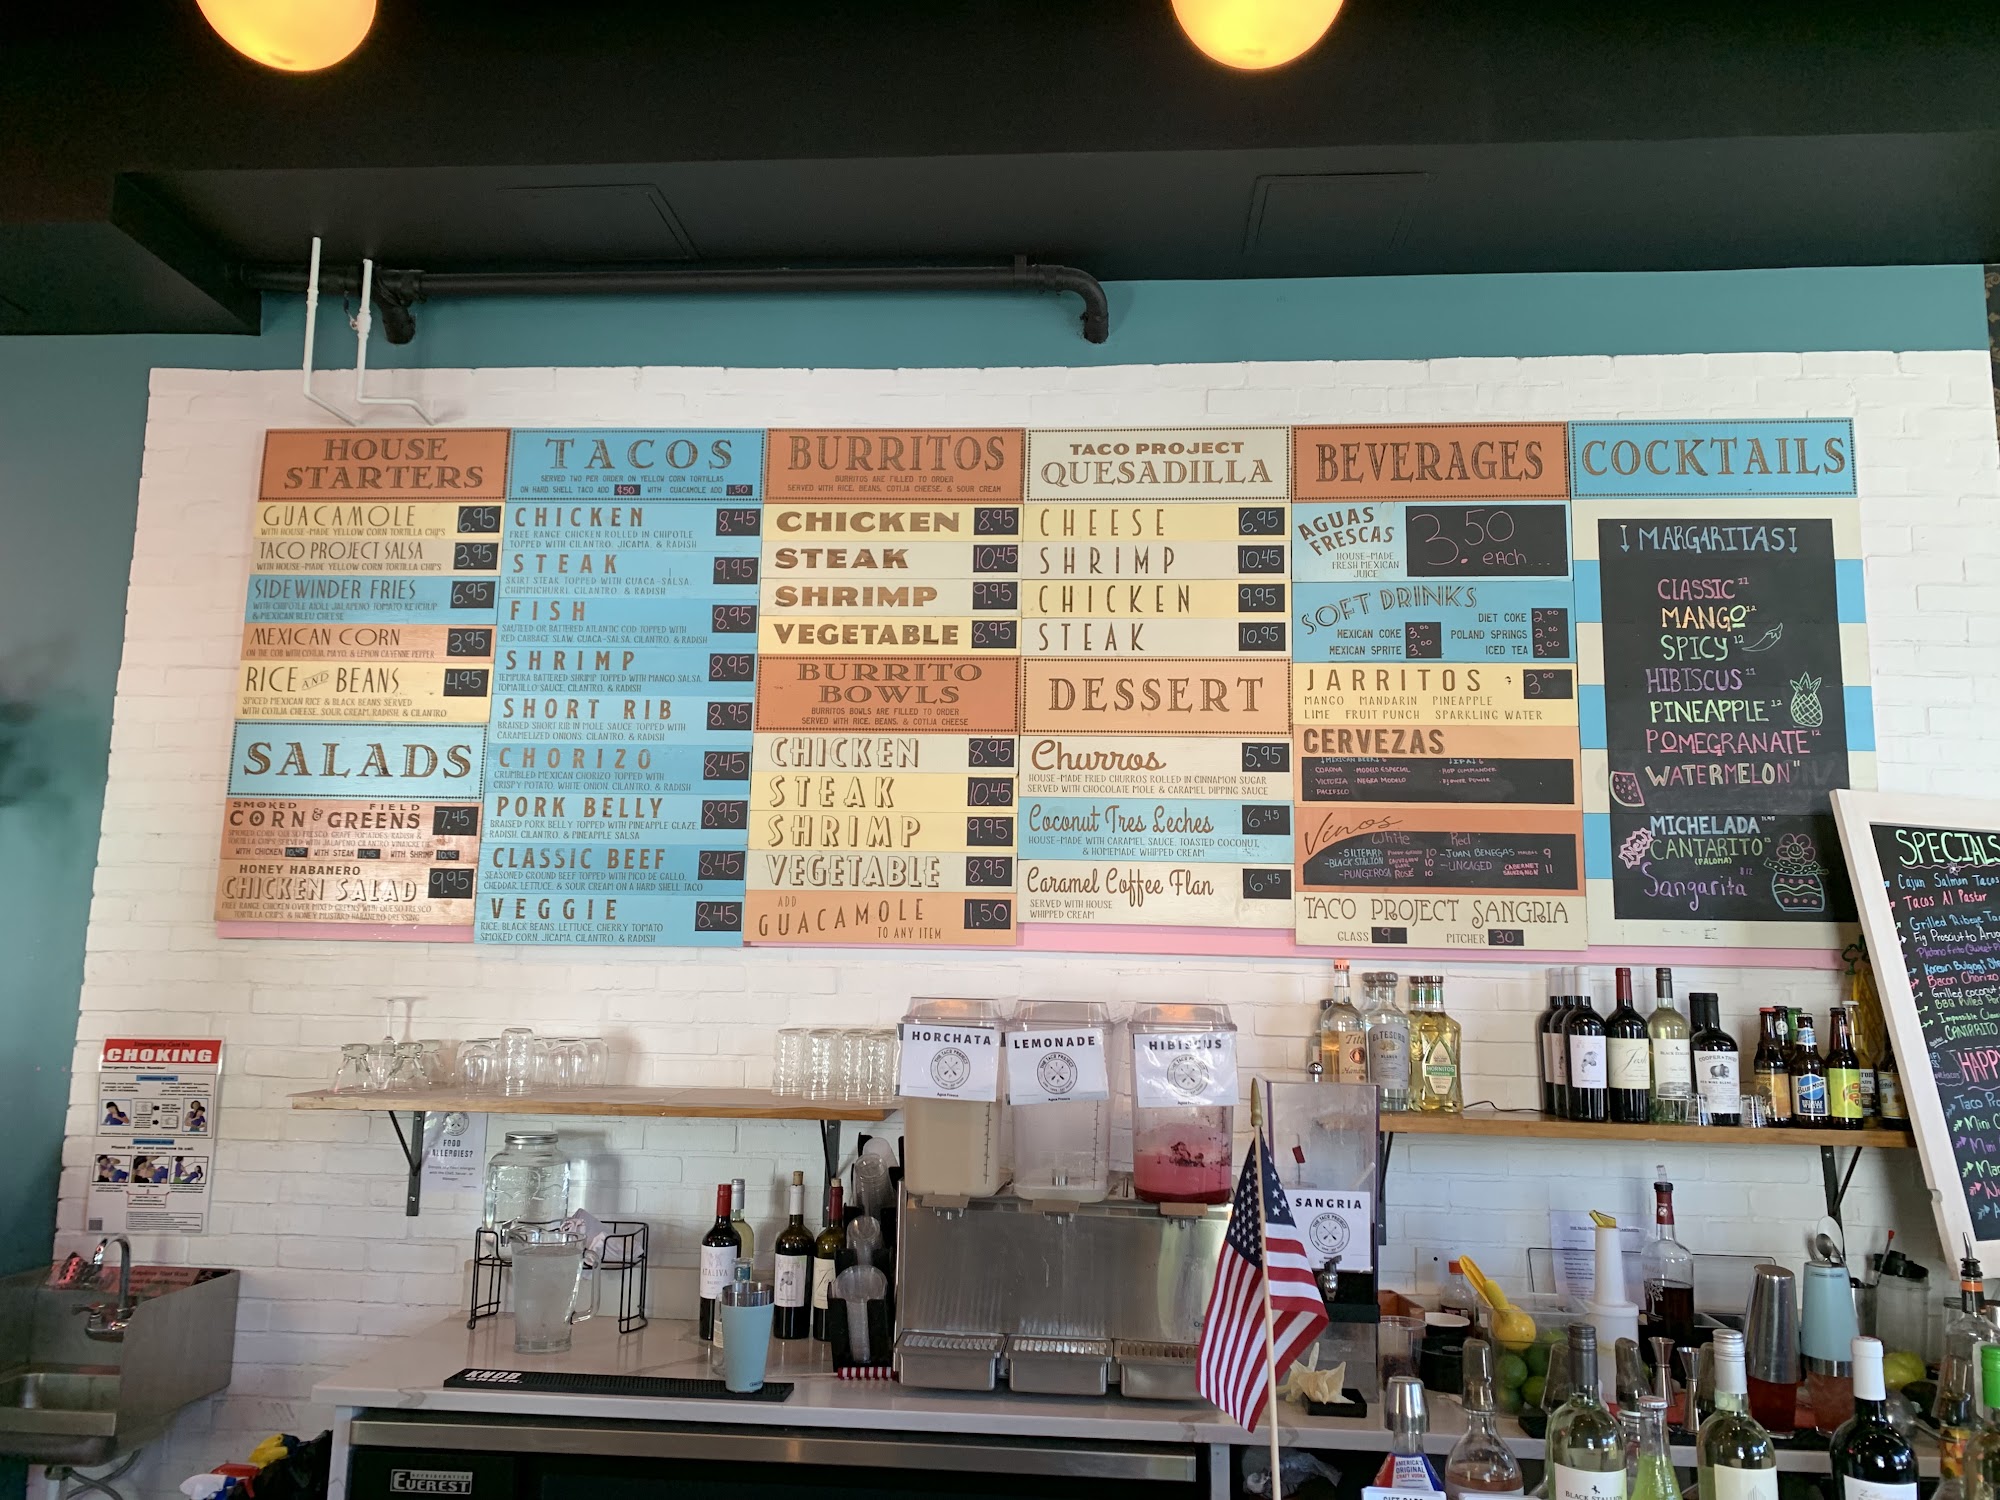 HOUSE
STARTERS
GUACAMOLE 6.95
WITH HOUSE-MADE YELLOW CORN TORTILLA CHIPS
TACO PROJECT SALSA 3.95
WITH HOUSE-MADE YELLOW CORN TORTILLA CHIPS
SIDEWINDER FRIES 6.95
WITH CHIPOTLE AIOLI, JALAPENO, TOMATO KETCHUP
& MEXICAN BLEU CHEESE
MEXICAN CORN 3.95
ON THE COB WITH COTIJA, MAYO, & LEMON CAYENNE PEPPER
RICE AND BEANS 4.95
SPICED MEXICAN RICE & BLACK BEANS SERVED
WITH COTIJA CHEESE, SOUR CREAM, RADISH & CILANTRO
SALADS
SMOKED FIELD
CORN & GREENS 7.45
SMOKED CORN, QUESO FRESCO, GRAPE TOMATOES, RADISH &
TORTILLA CHIPS SERVED WITH JALAPENO CILANTRO VINAIGRETTE
WITH CHICKEN 10.45 WITH STEAK 11.45 WITH SHRIMP 10.95
HONEY HABANERO
CHICKEN SALAD 9.95
FREE RANGE CHICKEN OVER MIXED GREENS WITH QUESO FRESCO
TORTILLA CHIPS, & HONEY MUSTARD HABANERO DRESSING
TACOS
SERVED TWO PER ORDER ON YELLOW CORN TORTILLAS
ON HARD SHELL TACO ADD $.50 WITH GUACAMOLE ADD 1.50
CHICKEN 8.45
FREE RANGE CHICKEN ROLLED IN CHIPOTLE
TOPPED WITH CILANTRO, JICAMA, & RADISH
STEAK 9.95
SKIRT STEAK TOPPED WITH GUACA-SALSA,
CHIMMICHURRI, CILANTRO, & RADISH
FISH 8.95
SAUTEED OR BATTERED ATLANTIC COD TOPPED WITH
RED CABBAGE SLAW, GUACA-SALSA, CILANTRO, & RADISH
SHRIMP 8.95
TEMPURA BATTERED SHRIMP TOPPED WITH MANGO SALSA,
TOMATILLO SAUCE, CILANTRO, & RADISH
SHORT RIB 8.95
BRAISED SHORT RIB IN MOLE SAUCE TOPPED WITH
CARAMELIZED ONIONS, CILANTRO, & RADISH
CHORIZO 8.45
CRUMBLED MEXICAN CHORIZO TOPPED WITH
CRISPY POTATO, WHITE ONION, CILANTRO, & RADISH
PORK BELLY 8.95
BRAISED PORK BELLY TOPPED WITH PINEAPPLE GLAZE,
RADISH, CILANTRO, & PINEAPPLE SALSA
CLASSIC BEEF 8.45
SEASONED GROUND BEEF TOPPED WITH PICO DE GALLO,
CHEDDAR, LETTUCE, & SOUR CREAM ON A HARD SHELL TACO
VEGGIE 8.45
RICE, BLACK BEANS, LETTUCE, CHERRY TOMATO
SMOKED CORN, JICAMA, CILANTRO, & RADISH
BURRITOS
BURRITOS ARE FILLED TO ORDER
SERVED WITH RICE, BEANS, COTIJA CHEESE, & SOUR CREAM
CHICKEN 8.95
STEAK 10.45
SHRIMP 9.95
VEGETABLE 8.95
BURRITO
BOWLS
BURRITOS BOWLS ARE FILLED TO ORDER
SERVED WITH RICE, BEANS, & COTIJA CHEESE
CHICKEN 8.95
STEAK 10.45
SHRIMP 9.95
VEGETABLE 8.95
ADD
GUACAMOLE 1.50
TO ANY ITEM
TACO PROJECT
QUESADILLA
CHEESE 6.95
SHRIMP 10.45
CHICKEN 9.95
STEAK 10.95
DESSERT
Churros 5.95
HOUSE-MADE FRIED CHURROS ROLLED IN CINNAMON SUGAR
SERVED WITH CHOCOLATE MOLE & CARAMEL DIPPING SAUCE
Coconut Tres Leches 6.45
HOUSE-MADE WITH CARAMEL SAUCE, TOASTED COCONUT,
& HOMEMADE WHIPPED CREAM
Caramel Coffee Flan 6.45
SERVED WITH HOUSE
WHIPPED CREAM
BEVERAGES
AGUAS
FRESCAS
HOUSE-MADE
FRESH MEXICAN
JUICE
3.50
each...
SOFT DRINKS
DIET COKE 2.00
MEXICAN COKE 3.00 POLAND SPRINGS 2.00
MEXICAN SPRITE 3.00 ICED TEA 3.00
JARRITOS 3.00
MANGO MANDARIN PINEAPPLE
LIME FRUIT PUNCH SPARKLING WATER
CERVEZAS
MEXICAN BEERS IPA'S
- CORONA - MODELO ESPECIAL - HOP COMMANDER
- VICTORIA - NEGRA MODELO - FLOWER POWER
- PACIFICO
Vinos
White Red:
- SILTERRA 10 - JUAN BENEGAS 9
- BLACK STALLION 10 - UNCAGED CABERNET SAUVIGNON 11
- PUNGIROSA ROSÉ 10
TACO PROJECT SANGRIA
GLASS 9 PITCHER 30
COCKTAILS
¡MARGARITAS!
CLASSIC 11
MANGO 12
SPICY 12
HIBISCUS 11
PINEAPPLE 12
POMEGRANATE 12
WATERMELON 11
MICHELADA
CANTARITO 13
(PALOMA)
Sangarita
SPECIALS
Cajun Salmon Tacos
Tacos Al Pastor
Grilled Ribeye
Fig Prosciutto
Korean Bulgogi
Bacon Chorizo
Grilled coconut
BBQ Pulled
CANTARITO
HAPPY
HORCHATA
THE TACO PROJECT
Agua Fresca
LEMONADE
THE TACO PROJECT
Agua Fresca
HIBISCUS
THE TACO PROJECT
Agua Fresca
SANGRIA
THE TACO PROJECT
Emergency Care for
CHOKING
Emergency Phone Number
FOOD
ALLERGIES?
KNOB
CREEK
REFRIGERATION
EVEREST
AMERICA'S
ORIGINAL
CRAFT VODKA
BLACK STALLION
HORNITOS